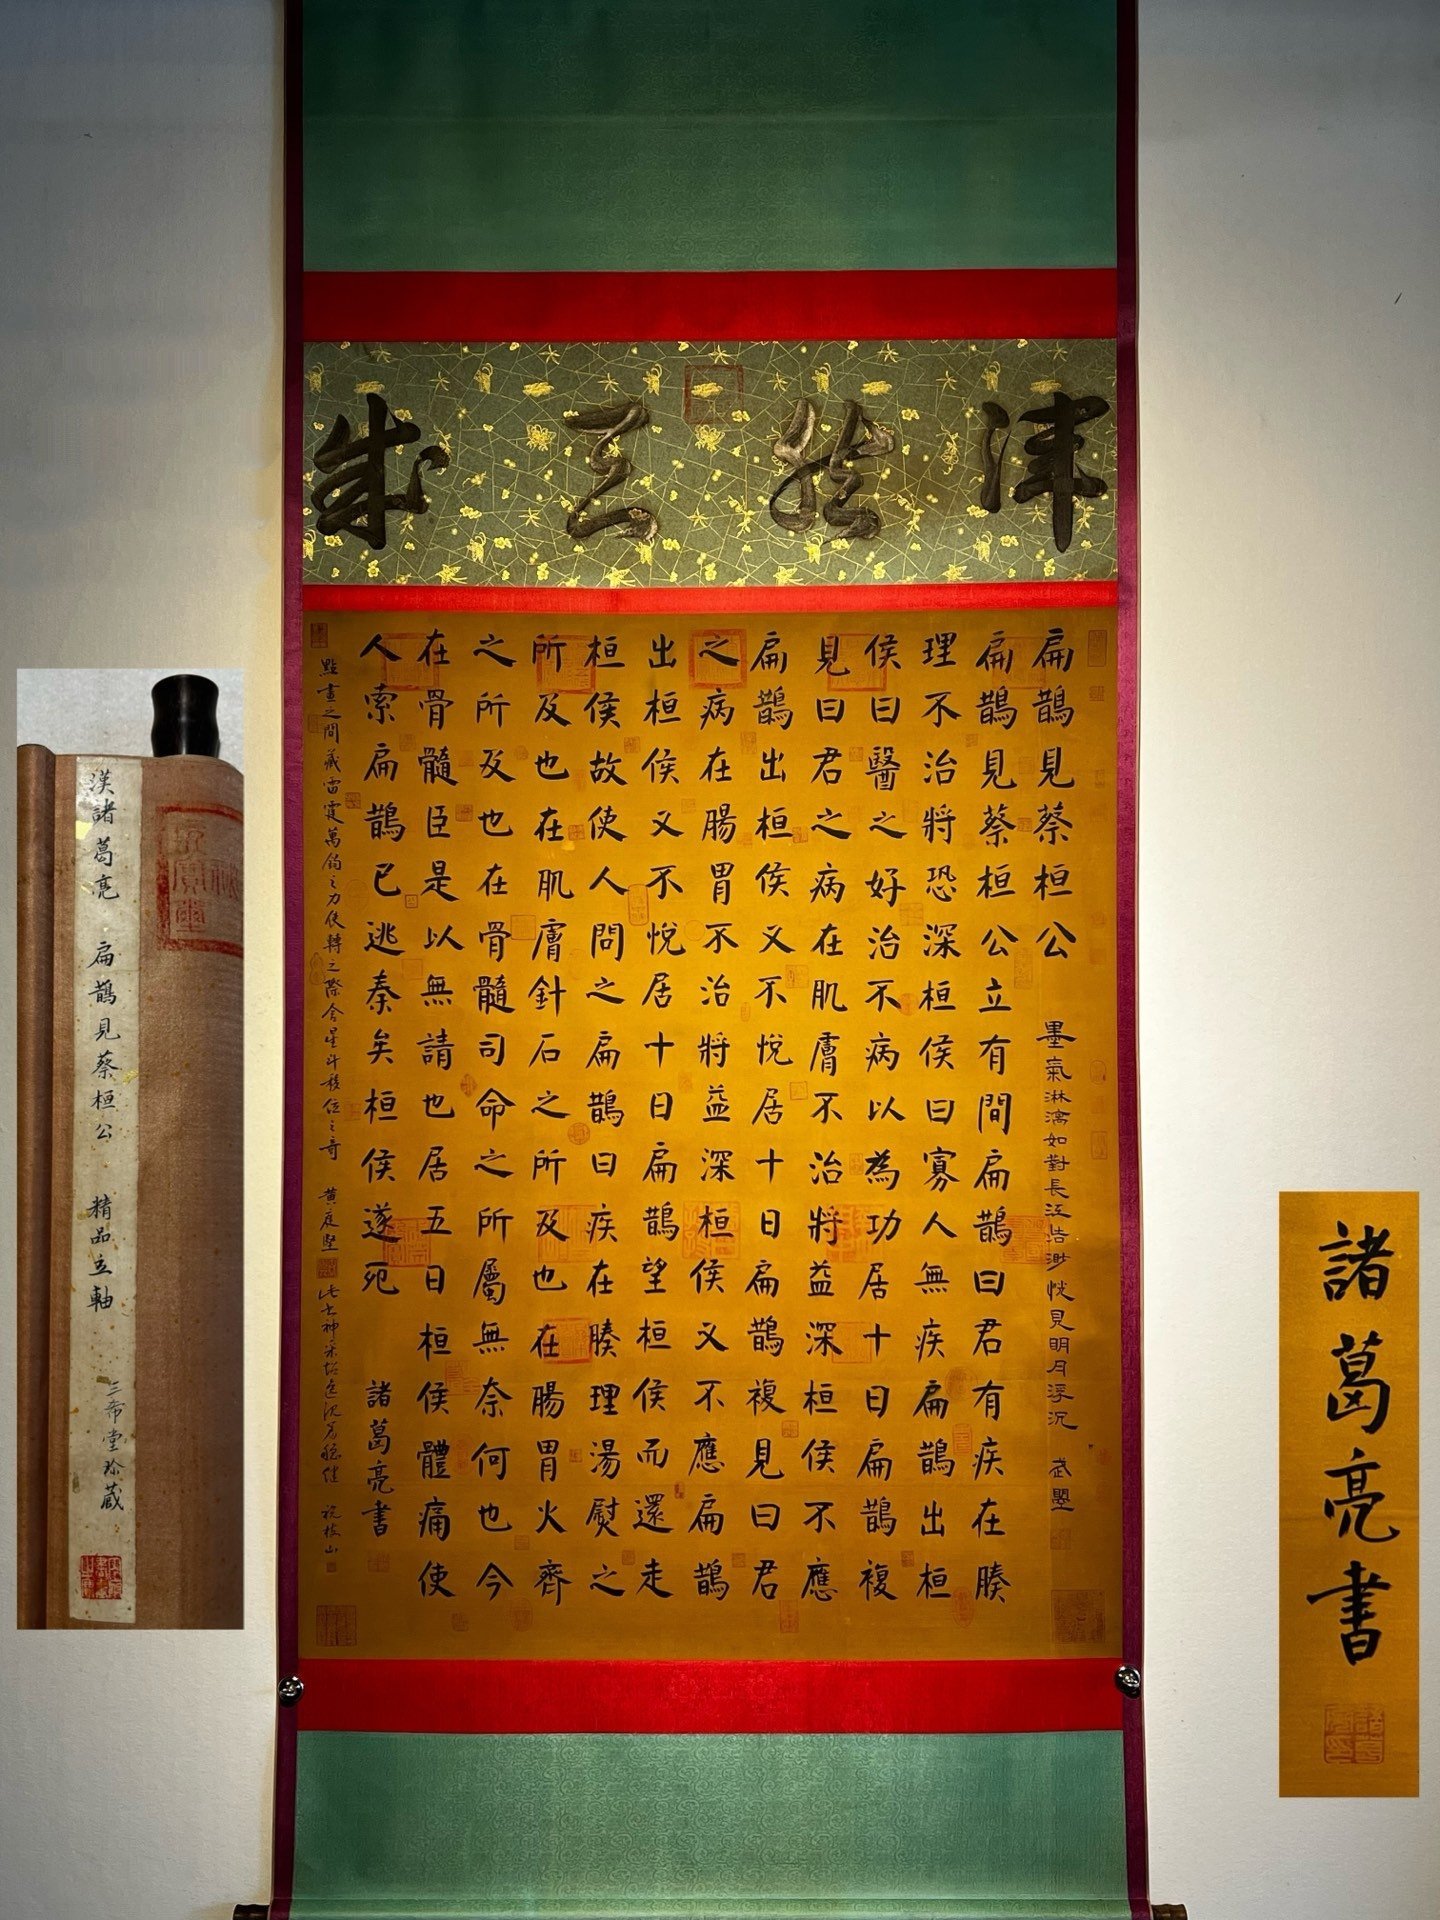 津
成
扁鵲見蔡桓公
墨氣淋漓如對長江浩渺恍見明月浮沉 武曌
扁鵲見蔡桓公立有間扁鵲曰君有疾在腠
理不治將恐深桓侯曰寡人無疾扁鵲出桓
侯曰醫之好治不病以為功居十日扁鵲複
見曰君之病在肌膚不治將益深桓侯不應
扁鵲出桓侯又不悅居十日扁鵲複見曰君
之病在腸胃不治將益深桓侯又不應扁鵲
出桓侯又不悅居十日扁鵲望桓侯而還走
桓侯故使人問之扁鵲曰疾在腠理湯熨之
所及也在肌膚針石之所及也在腸胃火齊
之所及也在骨髓司命之所屬無奈何也今
在骨髓臣是以無請也居五日桓侯體痛使
人索扁鵲已逃秦矣桓侯遂死 諸葛亮書
點畫之間藏雷霆萬鈞之力使轉之際含星斗移位之奇 黃庭堅 此書神采 祝枝山
漢諸葛亮 扁鵲見蔡桓公 精品立軸 三希堂珍藏
諸葛亮書